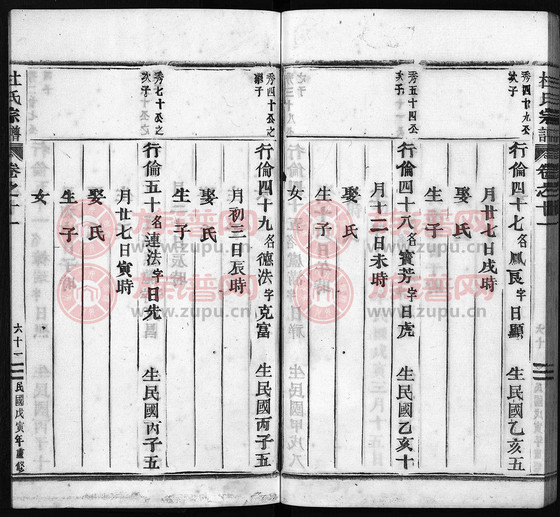 杜氏宗譜
卷之十一
秀四十九公之
次子
行倫四十七名鳳良字日顯 生民國乙亥五
月廿七日戌時
娶氏
生子
女
秀五十四公之
次子
行倫四十八名寶芳字日虎 生民國乙亥十
月十二日未時
娶氏
生子
女
秀四十公之
行倫四十九名德法字克富 生民國丙子五
月初三日辰時
娶氏
生子
女
秀七十公之
次子
行倫五十名連法字日先 生民國丙子五
月廿七日寅時
娶氏
生子
女
杜氏宗譜
卷之十一
六十一
民國戊寅年重修
族譜网
www.zupu.cn
族譜网
www.zupu.cn